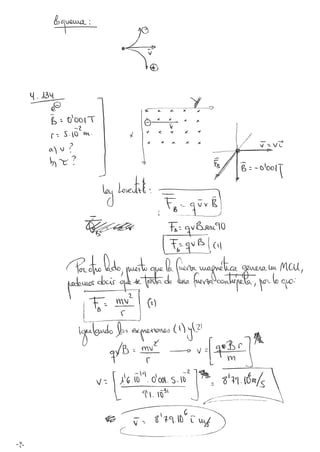 Esquema:
v⃗
4.134
e⊖
B⃗ = 0'001 T
r = 5·10⁻² m.
a) v?
b) τ?
v⃗ = v i⃗
F⃗B
B⃗ = -0'001 j⃗
Ley Lorentz:
F⃗B = q v⃗ × B⃗
FB = qvB sen 90
FB = qvB (1)
Por otro lado, puesto que la fuerza magnética genera un MCU,
podemos decir que se trata de una fuerza centrípeta, por lo que:
FB = mv²/r (2)
igualando las expresiones (1) y (2)
qvB = mv²/r → v = [qBr/m]
v = [1'6·10⁻¹⁹ · 0'001 · 5·10⁻² / 9'1·10⁻³¹] = 8'79·10⁶ m/s
v⃗ = 8'79·10⁶ i⃗ m/s